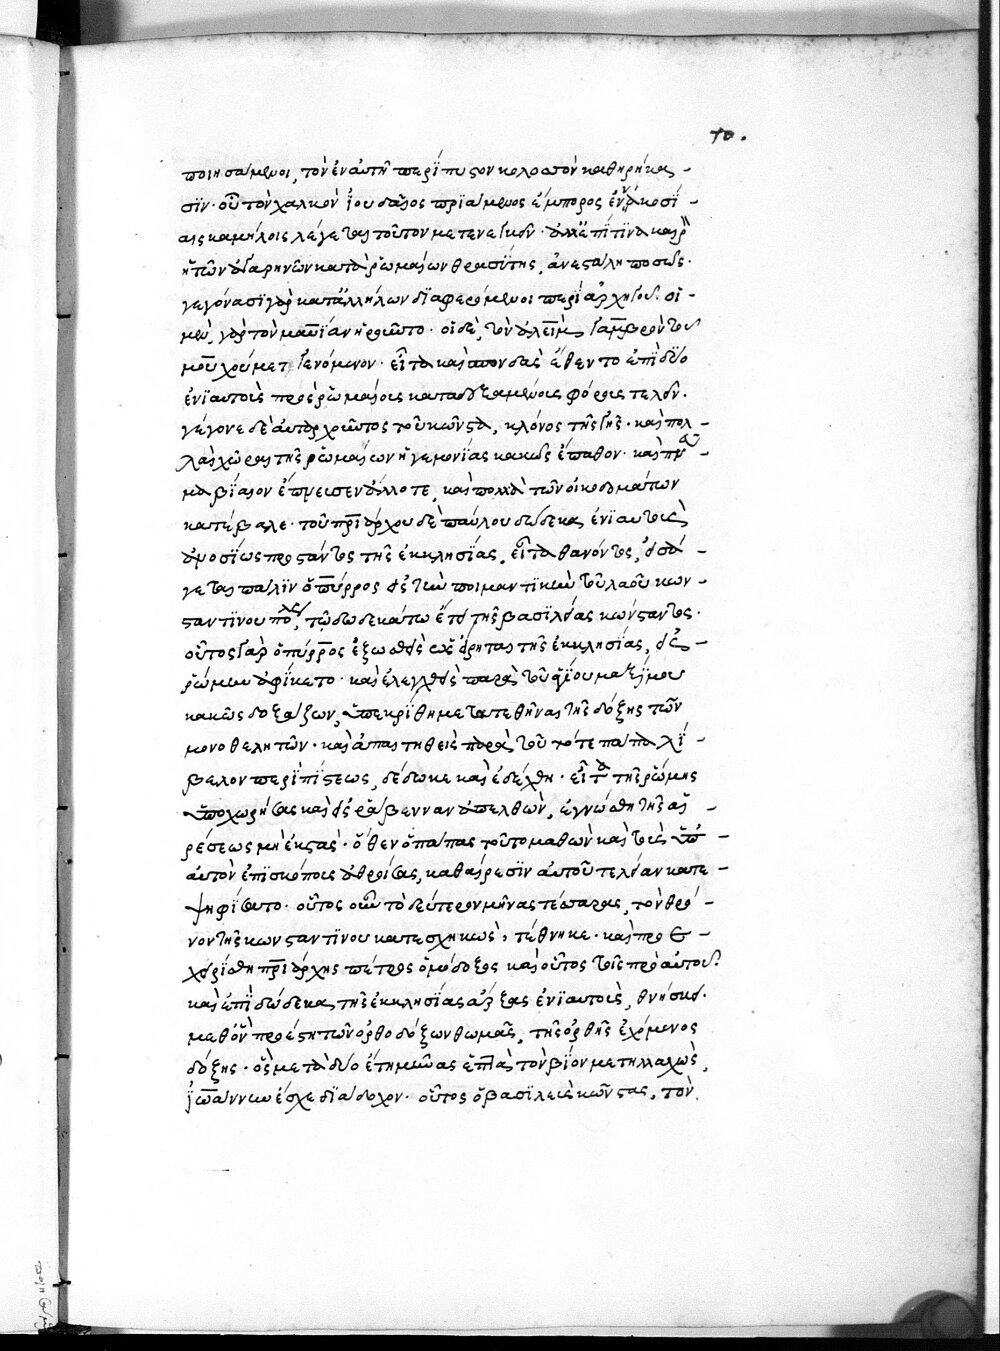 70.
ποιησάμενοι, τὸν ἐν αὐτῇ περίπυστον κολοσσὸν καθῃρήκα-
σιν· οὗ τὸν χαλκὸν ἰουδαῖος πριάμενος ἔμπορος ἐννακοσί-
αις καμήλοις λέγεται τοῦτον μετενεγκεῖν· ἀλλ' ἐπί τινα καιρὸν
ἡ τῶν ἀγαρηνῶν κατὰ ῥωμαίων θρασύτης, ἀνεστάλη ποσῶς·
γεγόνασι γὰρ κατ' ἀλλήλων διαφερόμενοι περὶ ἀρχηγοῦ. οἱ
μὲν, γὰρ τὸν μαυΐαν ᾑροῦντο· οἱ δὲ, τὸν ἀλεὶμ γαμβρὸν τοῦ
μουχούμετ γενόμενον· εἶτα καὶ σπονδὰς ἔθεντο ἐπὶ δύο
ἐνιαυτοῖς πρὸς ῥωμαίοις καταδεξάμενοις φόρους τελεῖν.
γέγονε δὲ αὐταρχοῦντος τοῦ κώνστα, κλόνος τῆς γῆς· καὶ πολ-
λαὶ χῶραι τῆς ῥωμαίων ἡγεμονίας κακῶς ἔπαθον· καὶ πνεῦ-
μα βίαιον ἔπνευσεν ἄλλοτε, καὶ πολλὰ τῶν οἰκοδομάτων
κατέβαλε· τοῦ πατριάρχου δὲ παύλου δώδεκα ἐνιαυτοὺς
ἀμοσίως προστάντος τῆς ἐκκλησίας, εἶτα θανόντος, εἰσά-
γεται πάλιν ὁ πύρρος εἰς τὴν ποιμαντικὴν τοῦ λαοῦ κων-
σταντίνου πόλεως, τῷ δωδεκάτῳ ἔτει τῆς βασιλείας κώνσταντος.
οὗτος γὰρ ὁ πύρρος ἐξωσθεὶς ὡς εἴρηται τῆς ἐκκλησίας, εἰς
ῥώμην ἀφίκετο· καὶ ἐλεγχθεὶς παρὰ τοῦ ἁγίου μαξίμου
κακῶς δοξάζων, ὑπεκρίθη μετατεθῆναι τῆς δόξης τῶν
μονοθελητῶν· καὶ ἀπαιτηθεὶς παρὰ τοῦ τότε πάπα λί-
βελον περὶ πίστεως, δέδωκε καὶ ἐδέχθη· εἶτα τῆς ῥώμης
ὑποχωρήσας καὶ εἰς ῥάβενναν ἀπελθὼν, ἐγνώσθη τῆς αἱ-
ρέσεως μὴ ἐκστάς· ὅθεν ὁ πάπας τοῦτο μαθὼν καὶ τοὺς ὑπ'
αὐτὸν ἐπισκόπους ἀθροίσας, καθαίρεσιν αὐτοῦ τελείαν κατε-
ψηφίσατο· οὗτος οὖν τὸ δεύτερον μῆνας τέσσαρας, τὸν θρό-
νον τῆς κωνσταντίνου κατεσχηκὼς, τέθνηκε· καὶ προε-
χειρίσθη πατριάρχης πέτρος ὁμόδοξος καὶ οὗτος τοῖς πρὸ αὐτοῦ.
καὶ ἐπὶ δώδεκα τῆς ἐκκλησίας ἄρξας ἐνιαυτοὺς, θνήσκει.
μεθ' ὃν προέστη τῶν ὀρθοδόξων θωμᾶς, τῆς ὀρθῆς ἐχόμενος
δόξης· ὃς μετὰ δύο ἔτη μῆνας ἑπτὰ τὸν βίον μετηλλαχὼς,
ἰωάννην ἔσχε διάδοχον· οὗτος ὁ βασιλεὺς κώνστας, τὸν